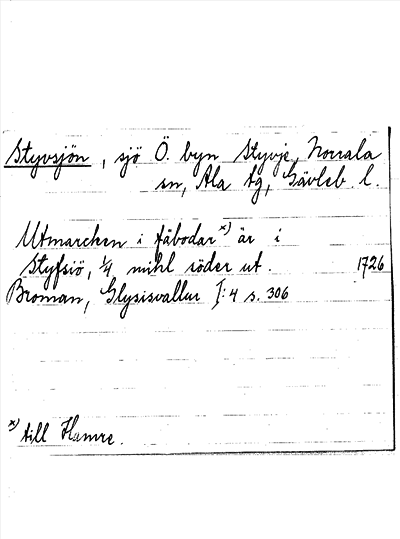 Styvsjön, sjö Ö. byn Styvje, Norrala
sn, Ala tg, Gävleb. l.
Utmarchen i fäbodar x) är i
Styfsiö, 1/4 mihl söder ut. 1726
Broman, Glysisvallur I:4 s. 306
x) till Hamre.